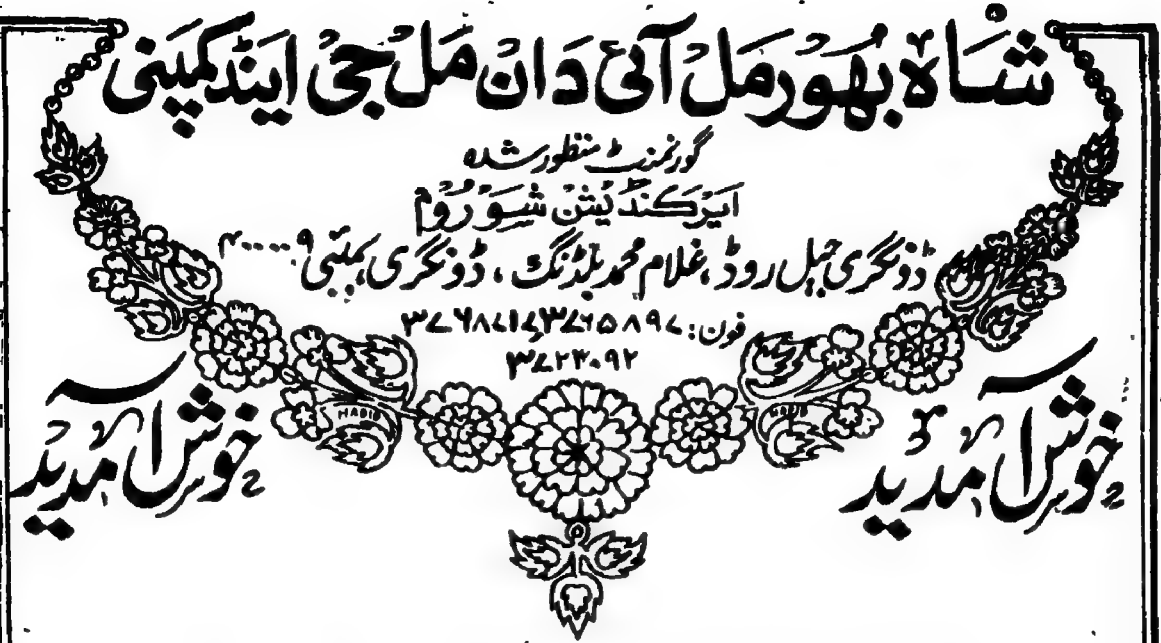 شاہ بھورمل آئی دان مل جی اینڈ کمپنی
گورنمنٹ منظور شدہ
ایرکنڈیشن شوروم
ڈونگری جیل روڈ، غلام محمد بلڈنگ، ڈونگری، بمبئی ۴۰۰۰۰۹
فون: ۳۷۶۵۸۹۷
۳۷۲۳۰۹۲
HABIB
خوش آمدید
خوش آمدید